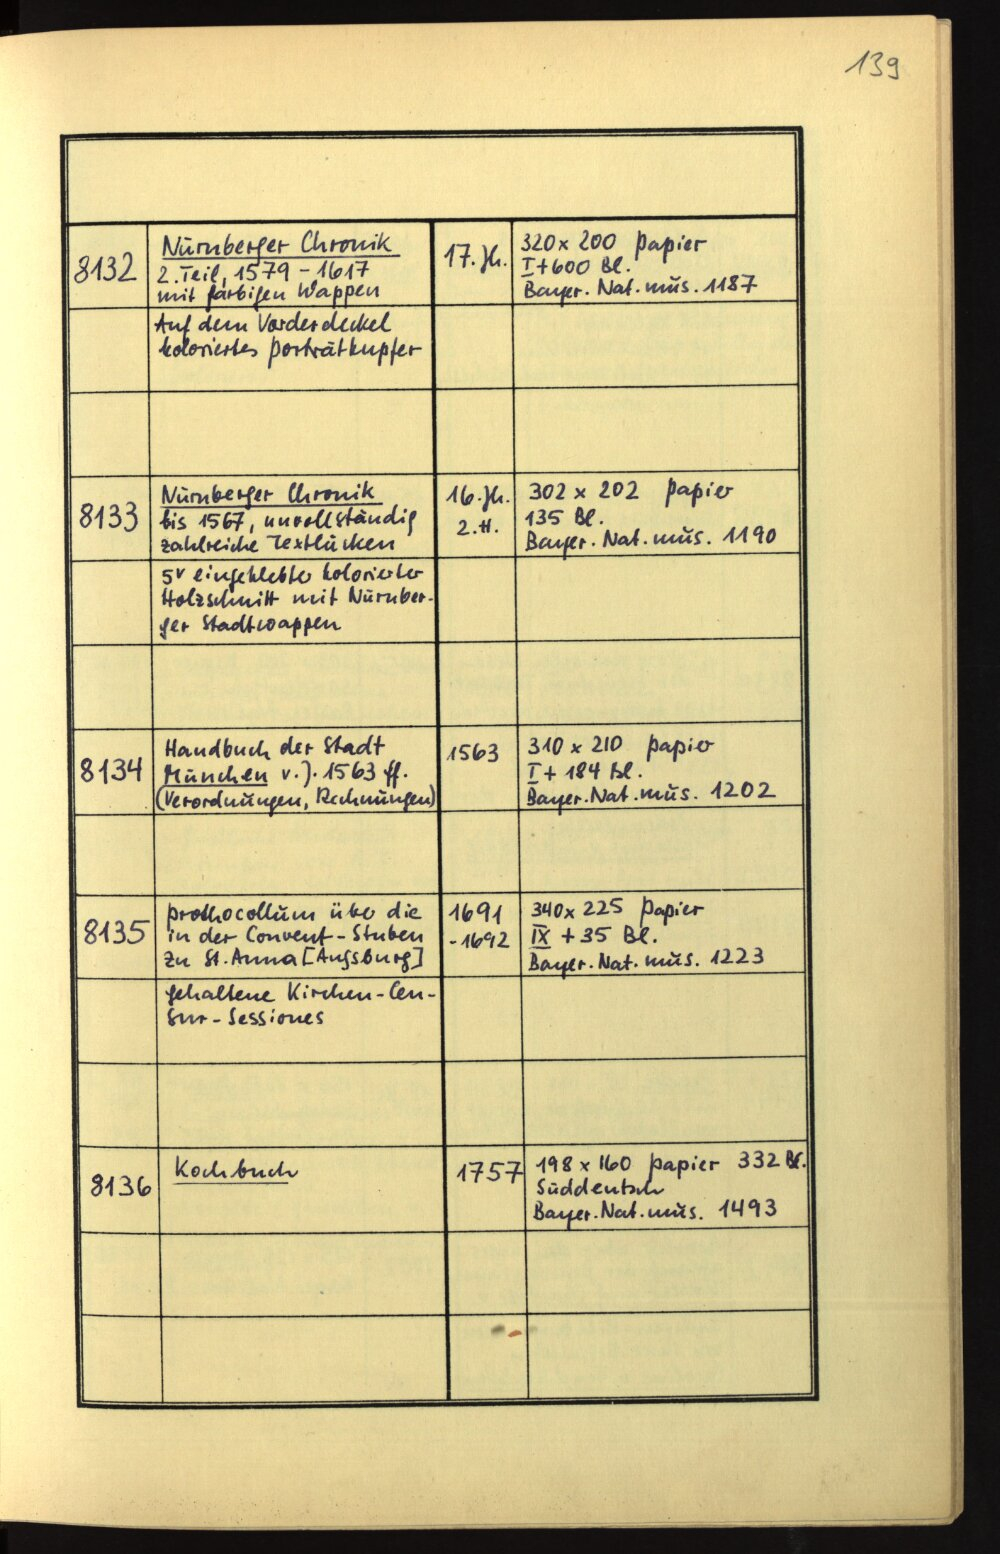 139
8132
Nürnberger Chronik
2. Teil, 1579 - 1617
mit farbigen Wappen
Auf dem Vorderdeckel
koloriertes Porträtkupfer
17. Jh.
320 x 200 Papier
I + 600 Bl.
Bayer. Nat. mus. 1187
8133
Nürnberger Chronik
bis 1567, unvollständig
zahlreiche Textlücken
5v eingeklebter kolorierter
Holzschnitt mit Nürnber-
ger Stadtwappen
16. Jh.
2. H.
302 x 202 Papier
135 Bl.
Bayer. Nat. mus. 1190
8134
Handbuch der Stadt
München v. J. 1563 ff.
(Verordnungen, Rechnungen)
1563
310 x 210 Papier
I + 184 Bl.
Bayer. Nat. mus. 1202
8135
Prothocollum über die
in der Convent-Stuben
zu St. Anna [Augsburg]
gehaltene Kirchen-Cen-
sur-Sessiones
1691
-1692
340 x 225 Papier
IX + 35 Bl.
Bayer. Nat. mus. 1223
8136
Kochbuch
1757
198 x 160 Papier 332 Bl.
Süddeutsch
Bayer. Nat. mus. 1493